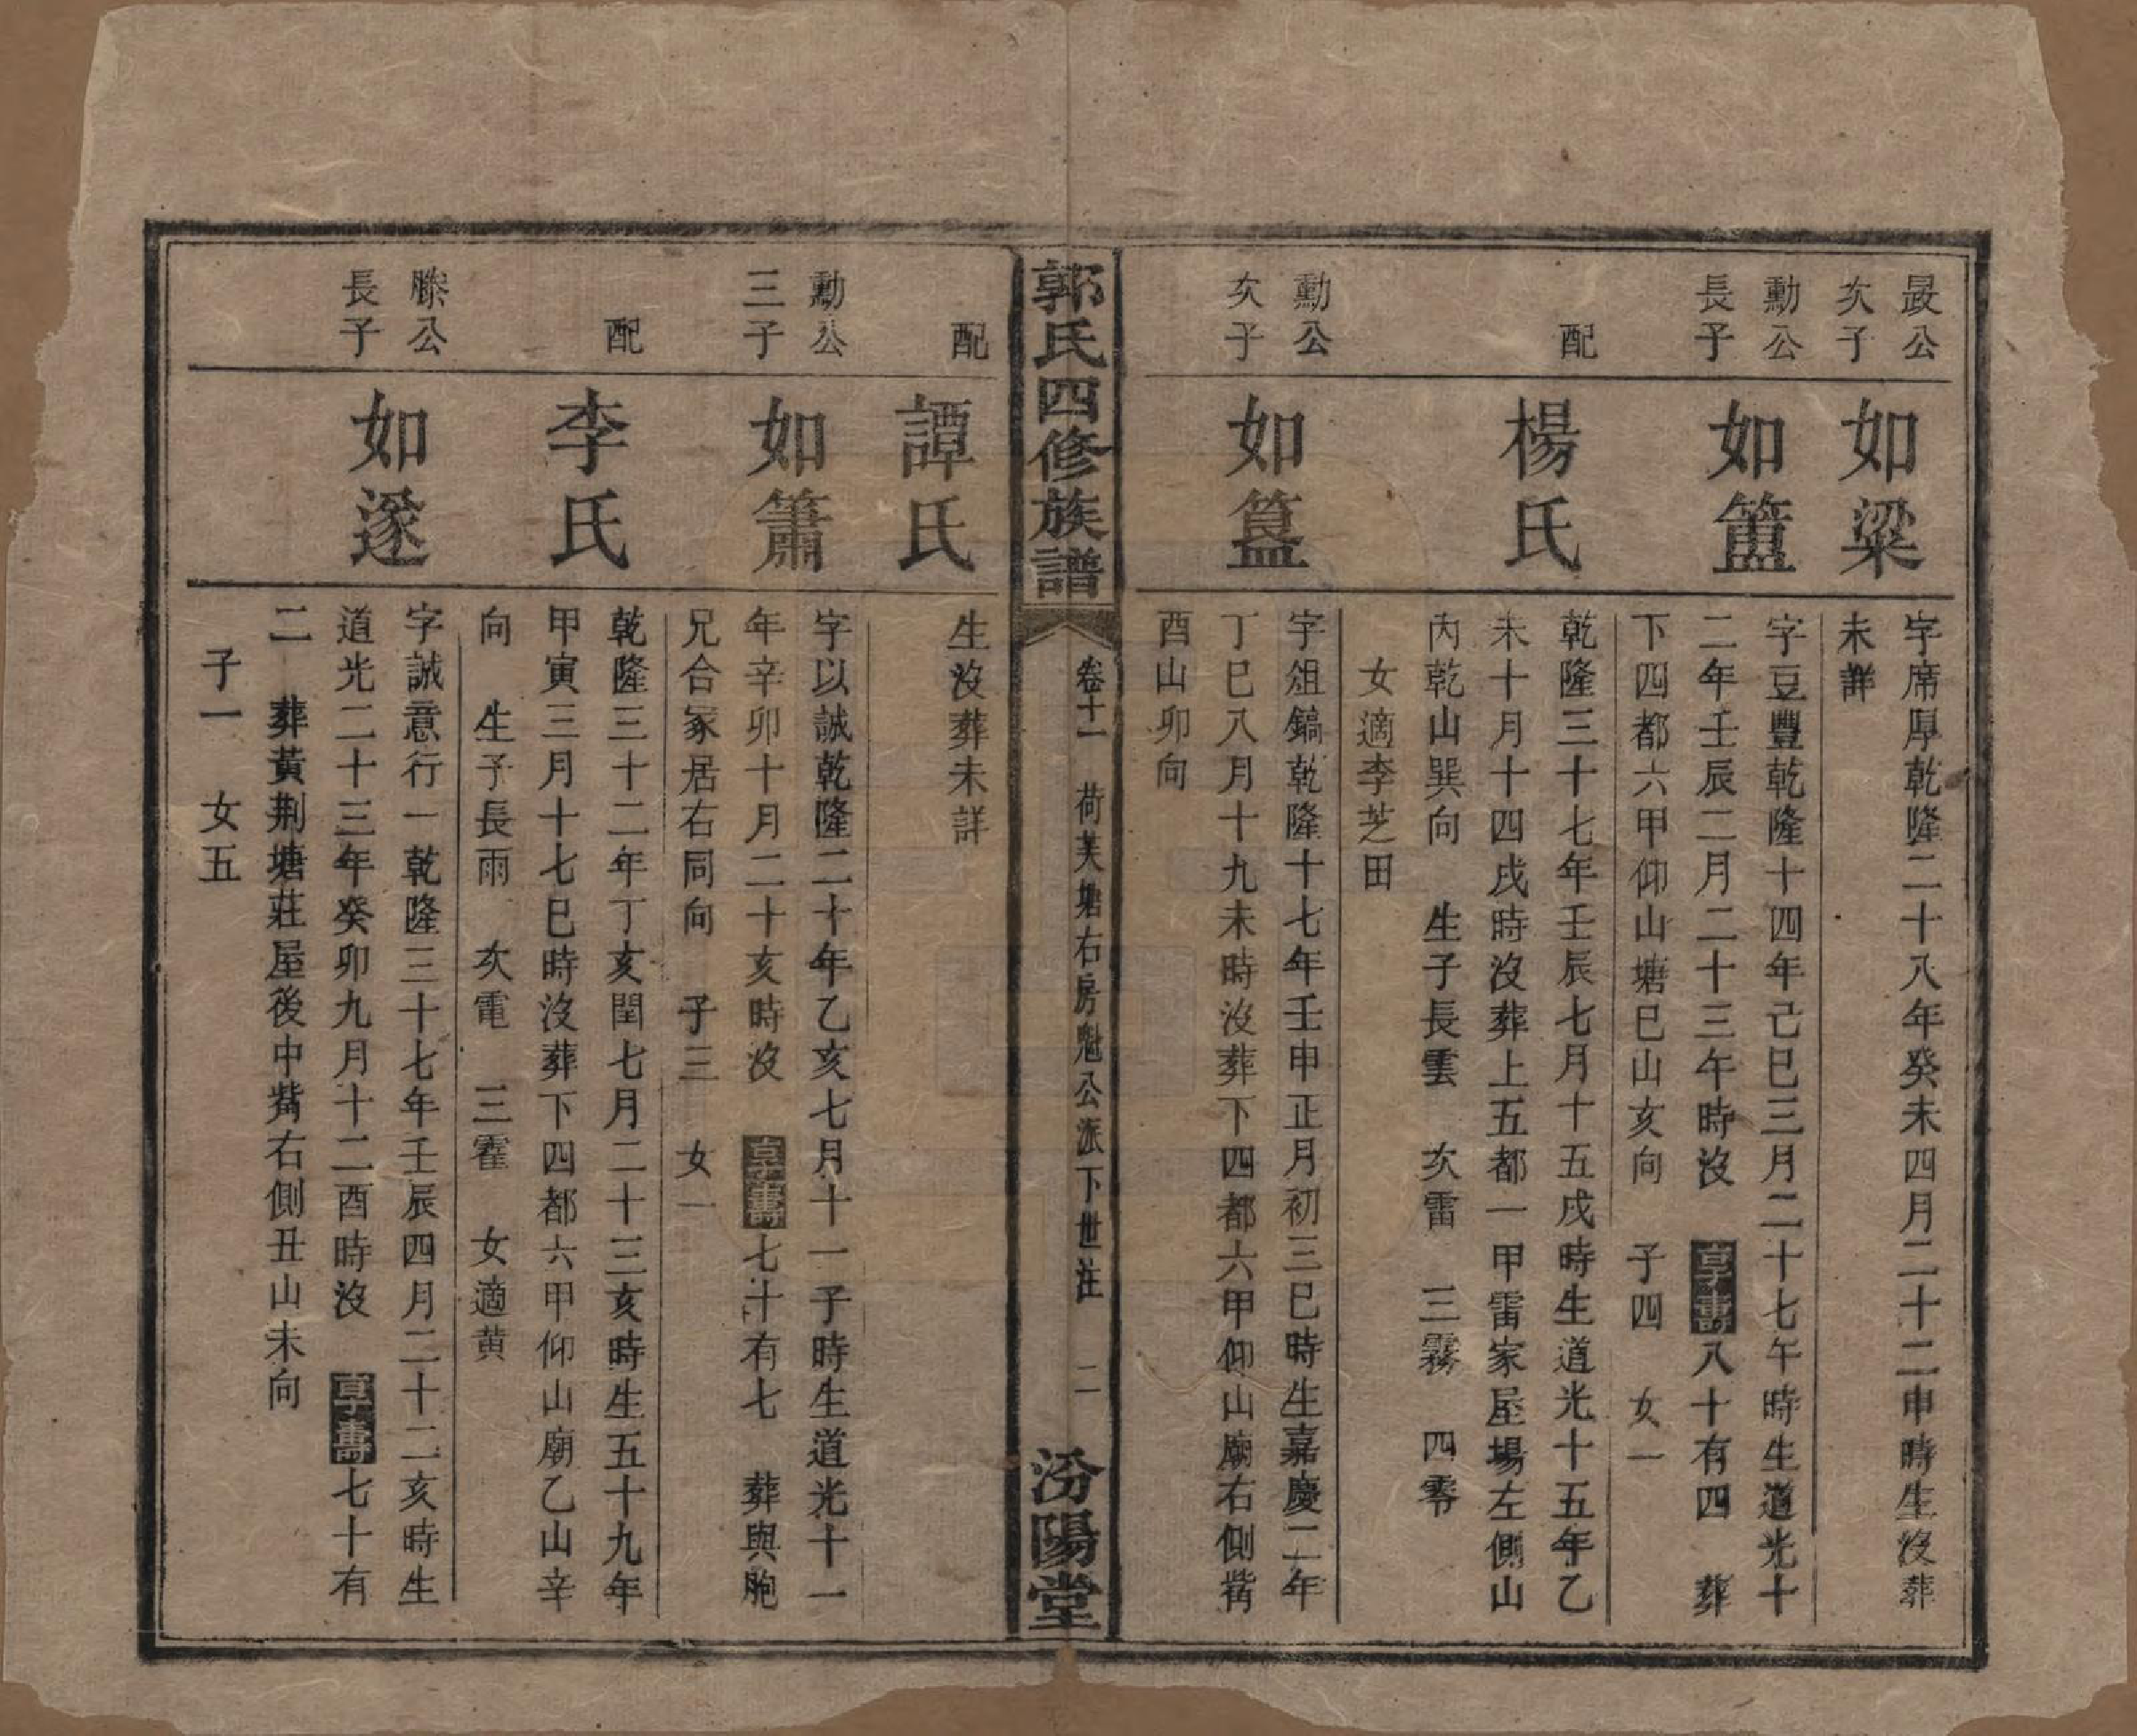 晸公
次子
如粱
字席厚乾隆二十八年癸未四月二十二申時生沒葬
未詳
勳公
長子
如簠
字豆豐乾隆十四年己巳三月二十七午時生道光十
二年壬辰二月二十三午時沒 享壽八十有四 葬
下四都六甲仰山塘巳山亥向 子四 女一
配
楊氏
乾隆三十七年壬辰七月十五戌時生道光十五年乙
未十月十四戌時沒葬上五都一甲雷家屋場左側山
內乾山巽向 生子長雲 次雷 三霧 四零
女適李芝田
勳公
次子
如簋
字俎鎬乾隆十七年壬申正月初三巳時生嘉慶二年
丁巳八月十九未時沒葬下四都六甲仰山廟右側觜
酉山卯向
郭氏四修族譜
卷十一 荷芙塘右房魁公派下世注 二
汾陽堂
配
譚氏
生沒葬未詳
勳公
三子
如簫
字以誠乾隆二十年乙亥七月十一子時生道光十一
年辛卯十月二十亥時沒 享壽七十有七 葬與胞
兄合冢居右同向 子三 女一
配
李氏
乾隆三十二年丁亥閏七月二十三亥時生五十九年
甲寅三月十七巳時沒葬下四都六甲仰山廟乙山辛
向 生子長雨 次電 三霍 女適黃
滕公
長子
如遂
字誠意行一乾隆三十七年壬辰四月二十二亥時生
道光二十三年癸卯九月十二酉時沒 享壽七十有
二 葬黃荆塘莊屋後中觜右側丑山未向
子一 女五